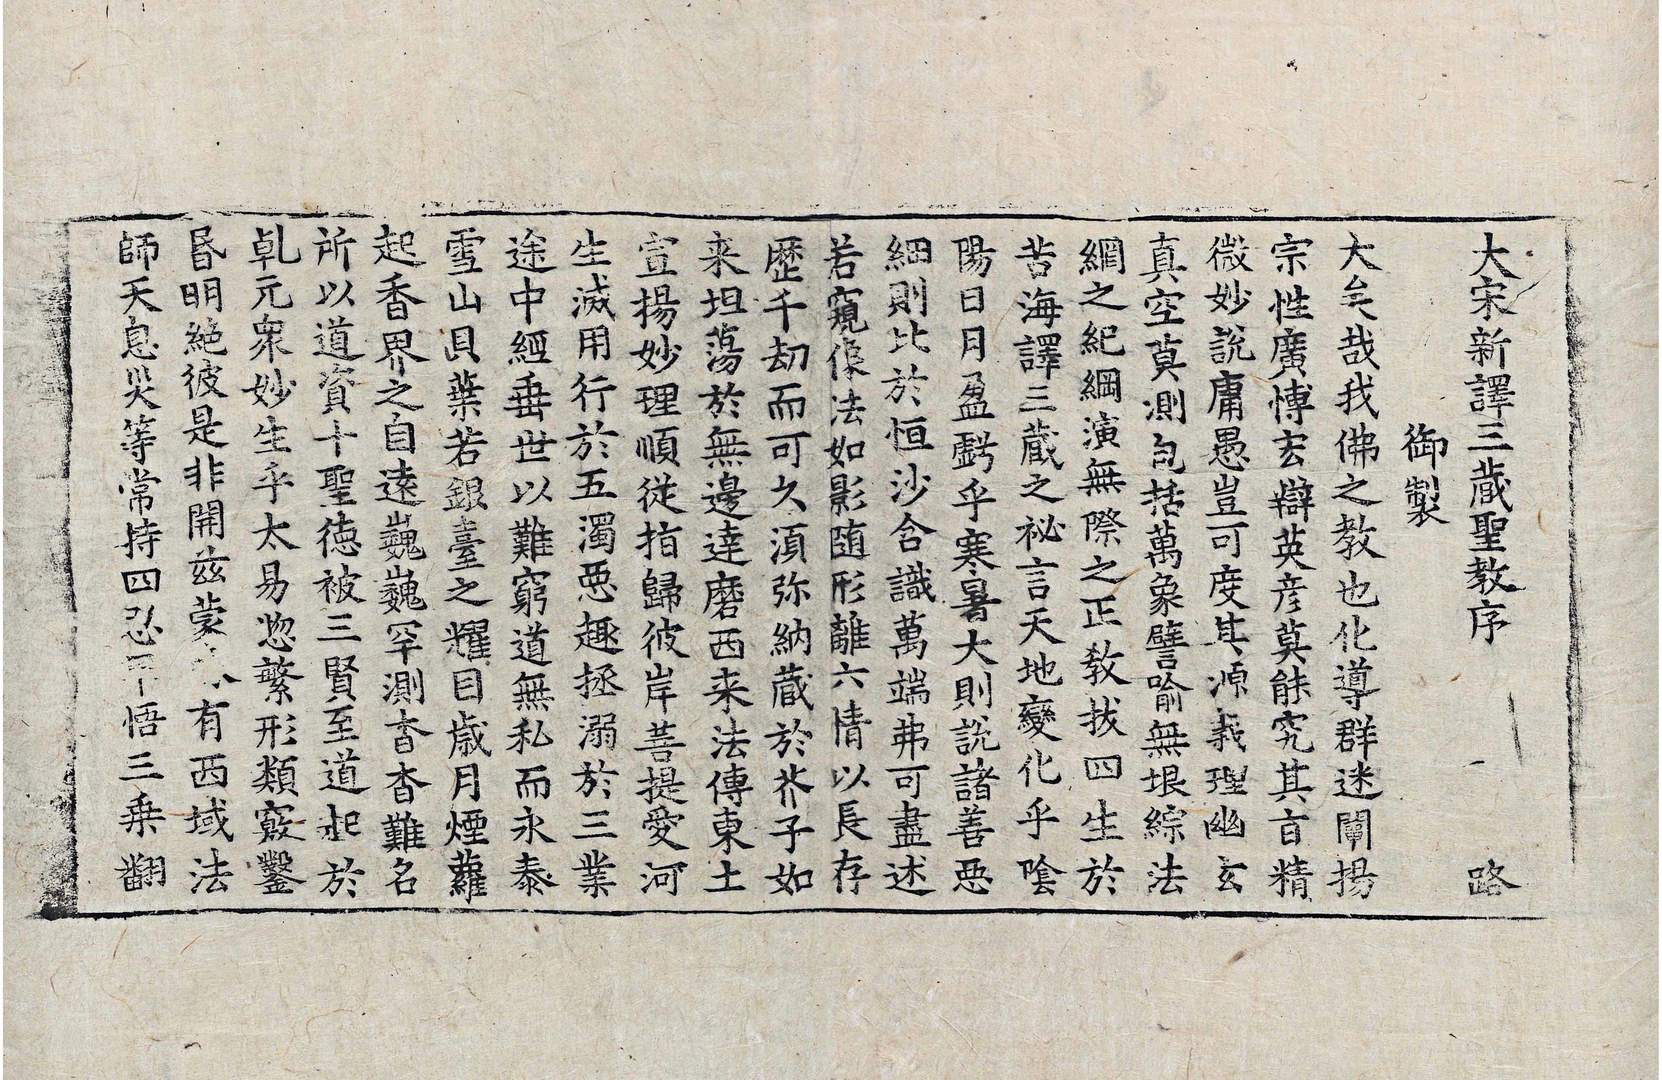 大宋新譯三蔵聖教序 路
御製
大矣哉我佛之教也化導群迷闡揚
宗性廣博玄辯英彦莫能究其旨精
微妙說庸愚豈可度其源義理幽玄
真空莫測包括萬象譬喻無垠綜法
網之紀綱演無際之正教拔四生於
苦海譯三蔵之祕言天地變化乎陰
陽日月盈虧乎寒暑大則說諸善惡
細則比於恒沙含識萬端弗可盡述
若窺像法如影随形離六情以長存
歷千劫而可久湏弥納蔵於芥子如
来坦蕩於無邊達磨西来法傳東土
宣揚妙理順従指歸彼岸菩提愛河
生滅用行於五濁惡趣拯溺於三業
途中經垂世以難窮道無私而永泰
雪山貝葉若銀臺之耀目歲月煙蘿
起香界之自遠巍巍罕測杳杳難名
所以道資十聖徳被三賢至道起於
乹元衆妙生乎太易惣繁形類竅鑿
昏明絶彼是非開茲蒙有西域法
師天息災等常持四忍悟三乗翻